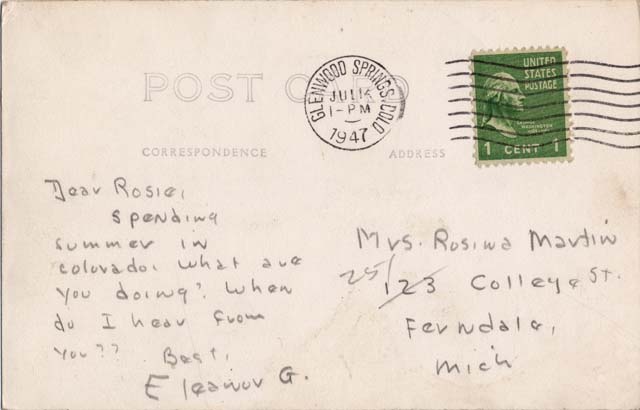 POST CARD
GLENWOOD SPRINGS, COLO.
JUL 14
1-PM
1947
UNITED
STATES
POSTAGE
WASHINGTON
1 CENT 1
CORRESPONDENCE
ADDRESS
Dear Rosie,
Spending
summer in
Colorado. What are
you doing? When
do I hear from
you?? Best,
Eleanor G.
Mrs. Rosina Martin
251
123 College St.
Ferndale,
Mich